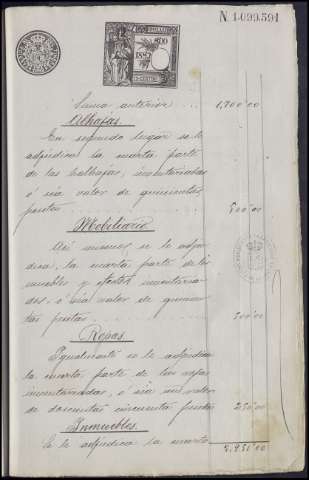 N 1.099.591
1887
Suma anterior ... 1,700'00
Alhajas.
En segundo lugar se le
adjudica la cuarta parte
de las halhajas, inventariadas
ó sia valor de quinientas
pesetas 500'00
Mobiliario
Asi mismo se le adju
dica, la cuarta parte de los
muebles y efectos inventaria
dos, ó sia valor de quinien
tas pesetas 500'00
Ropas
Igualmente se le adjudica
la cuarta parte de las ropas
inventariadas, ó sia un valor
de doscientas cincuenta pesetas 250'00
Inmuebles.
Se le adjudica la cuarta
2.950'00